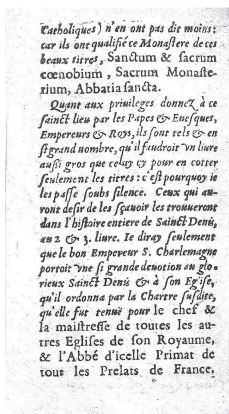 Catholiques) n'en ont pas dit moins:
car ils ont qualifié ce Monastere de ces
beaux titres, Sanctum & sacrum
cœnobium, Sacrum Monaste-
rium, Abbatia sancta.
Quant aux privileges donnez à ce
sainct lieu par les Papes & Euesques,
Empereurs & Roys, ils sont tels & en
si grand nombre, qu'il faudroit vn liure
aussi gros que celuy cy pour en cotter
seulement les titres: c'est pourquoy ie
les passe soubs silence. Ceux qui au-
ront desir de les sçauoir les trouueront
dans l'histoire entiere de Sainct Denis,
au 2 & 3. liure. Ie diray seulement
que le bon Empereur S. Charlemagne
portoit vne si grande deuotion au glo-
rieux Sainct Denis & à son Eglise,
qu'il ordonna par la Chartre susdite,
qu'elle fut tenuë pour le chef &
la maistresse de toutes les au-
tres Eglises de son Royaume,
& l'Abbé d'icelle Primat de
tout les Prelats de France.